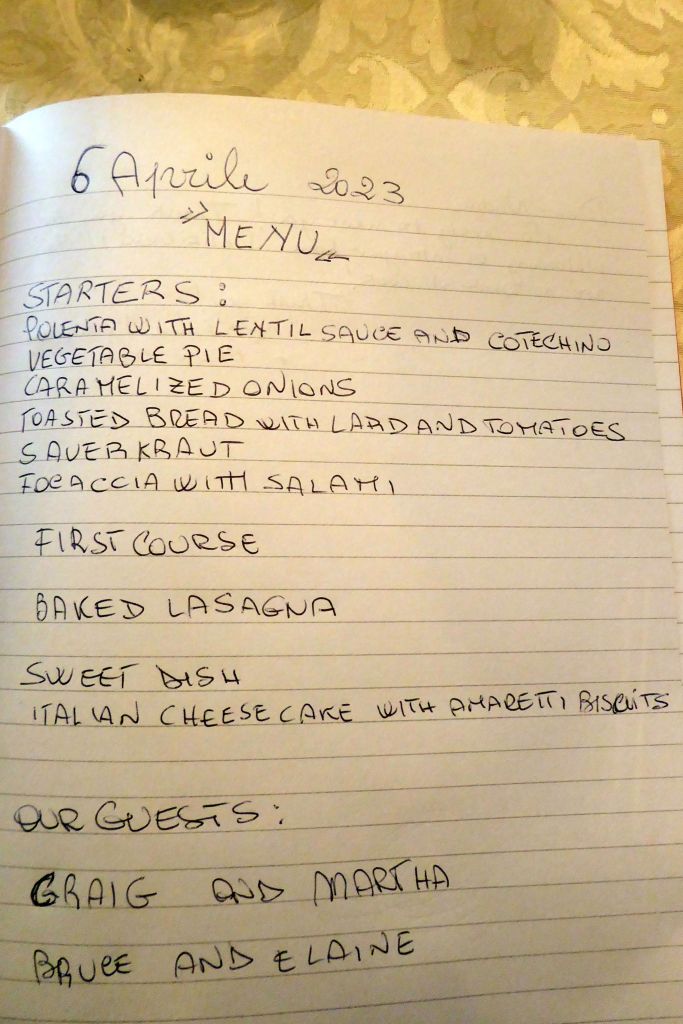 6 Aprile 2023
"MENU"
STARTERS:
POLENTA WITH LENTIL SAUCE AND COTECHINO
VEGETABLE PIE
CARAMELIZED ONIONS
TOASTED BREAD WITH LARD AND TOMATOES
SAUERKRAUT
FOCACCIA WITH SALAMI
FIRST COURSE
BAKED LASAGNA
SWEET DISH
ITALIAN CHEESE CAKE WITH AMARETTI BISCUITS
OUR GUESTS:
GRAIG AND MARTHA
BRUCE AND ELAINE